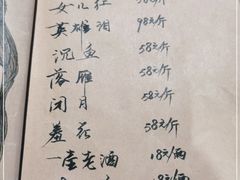 女儿红 58元/斤
英雄泪 98元/斤
沉鱼 58元/斤
落雁 58元/斤
闭月 58元/斤
羞花 58元/斤
一壶老酒 18元/两